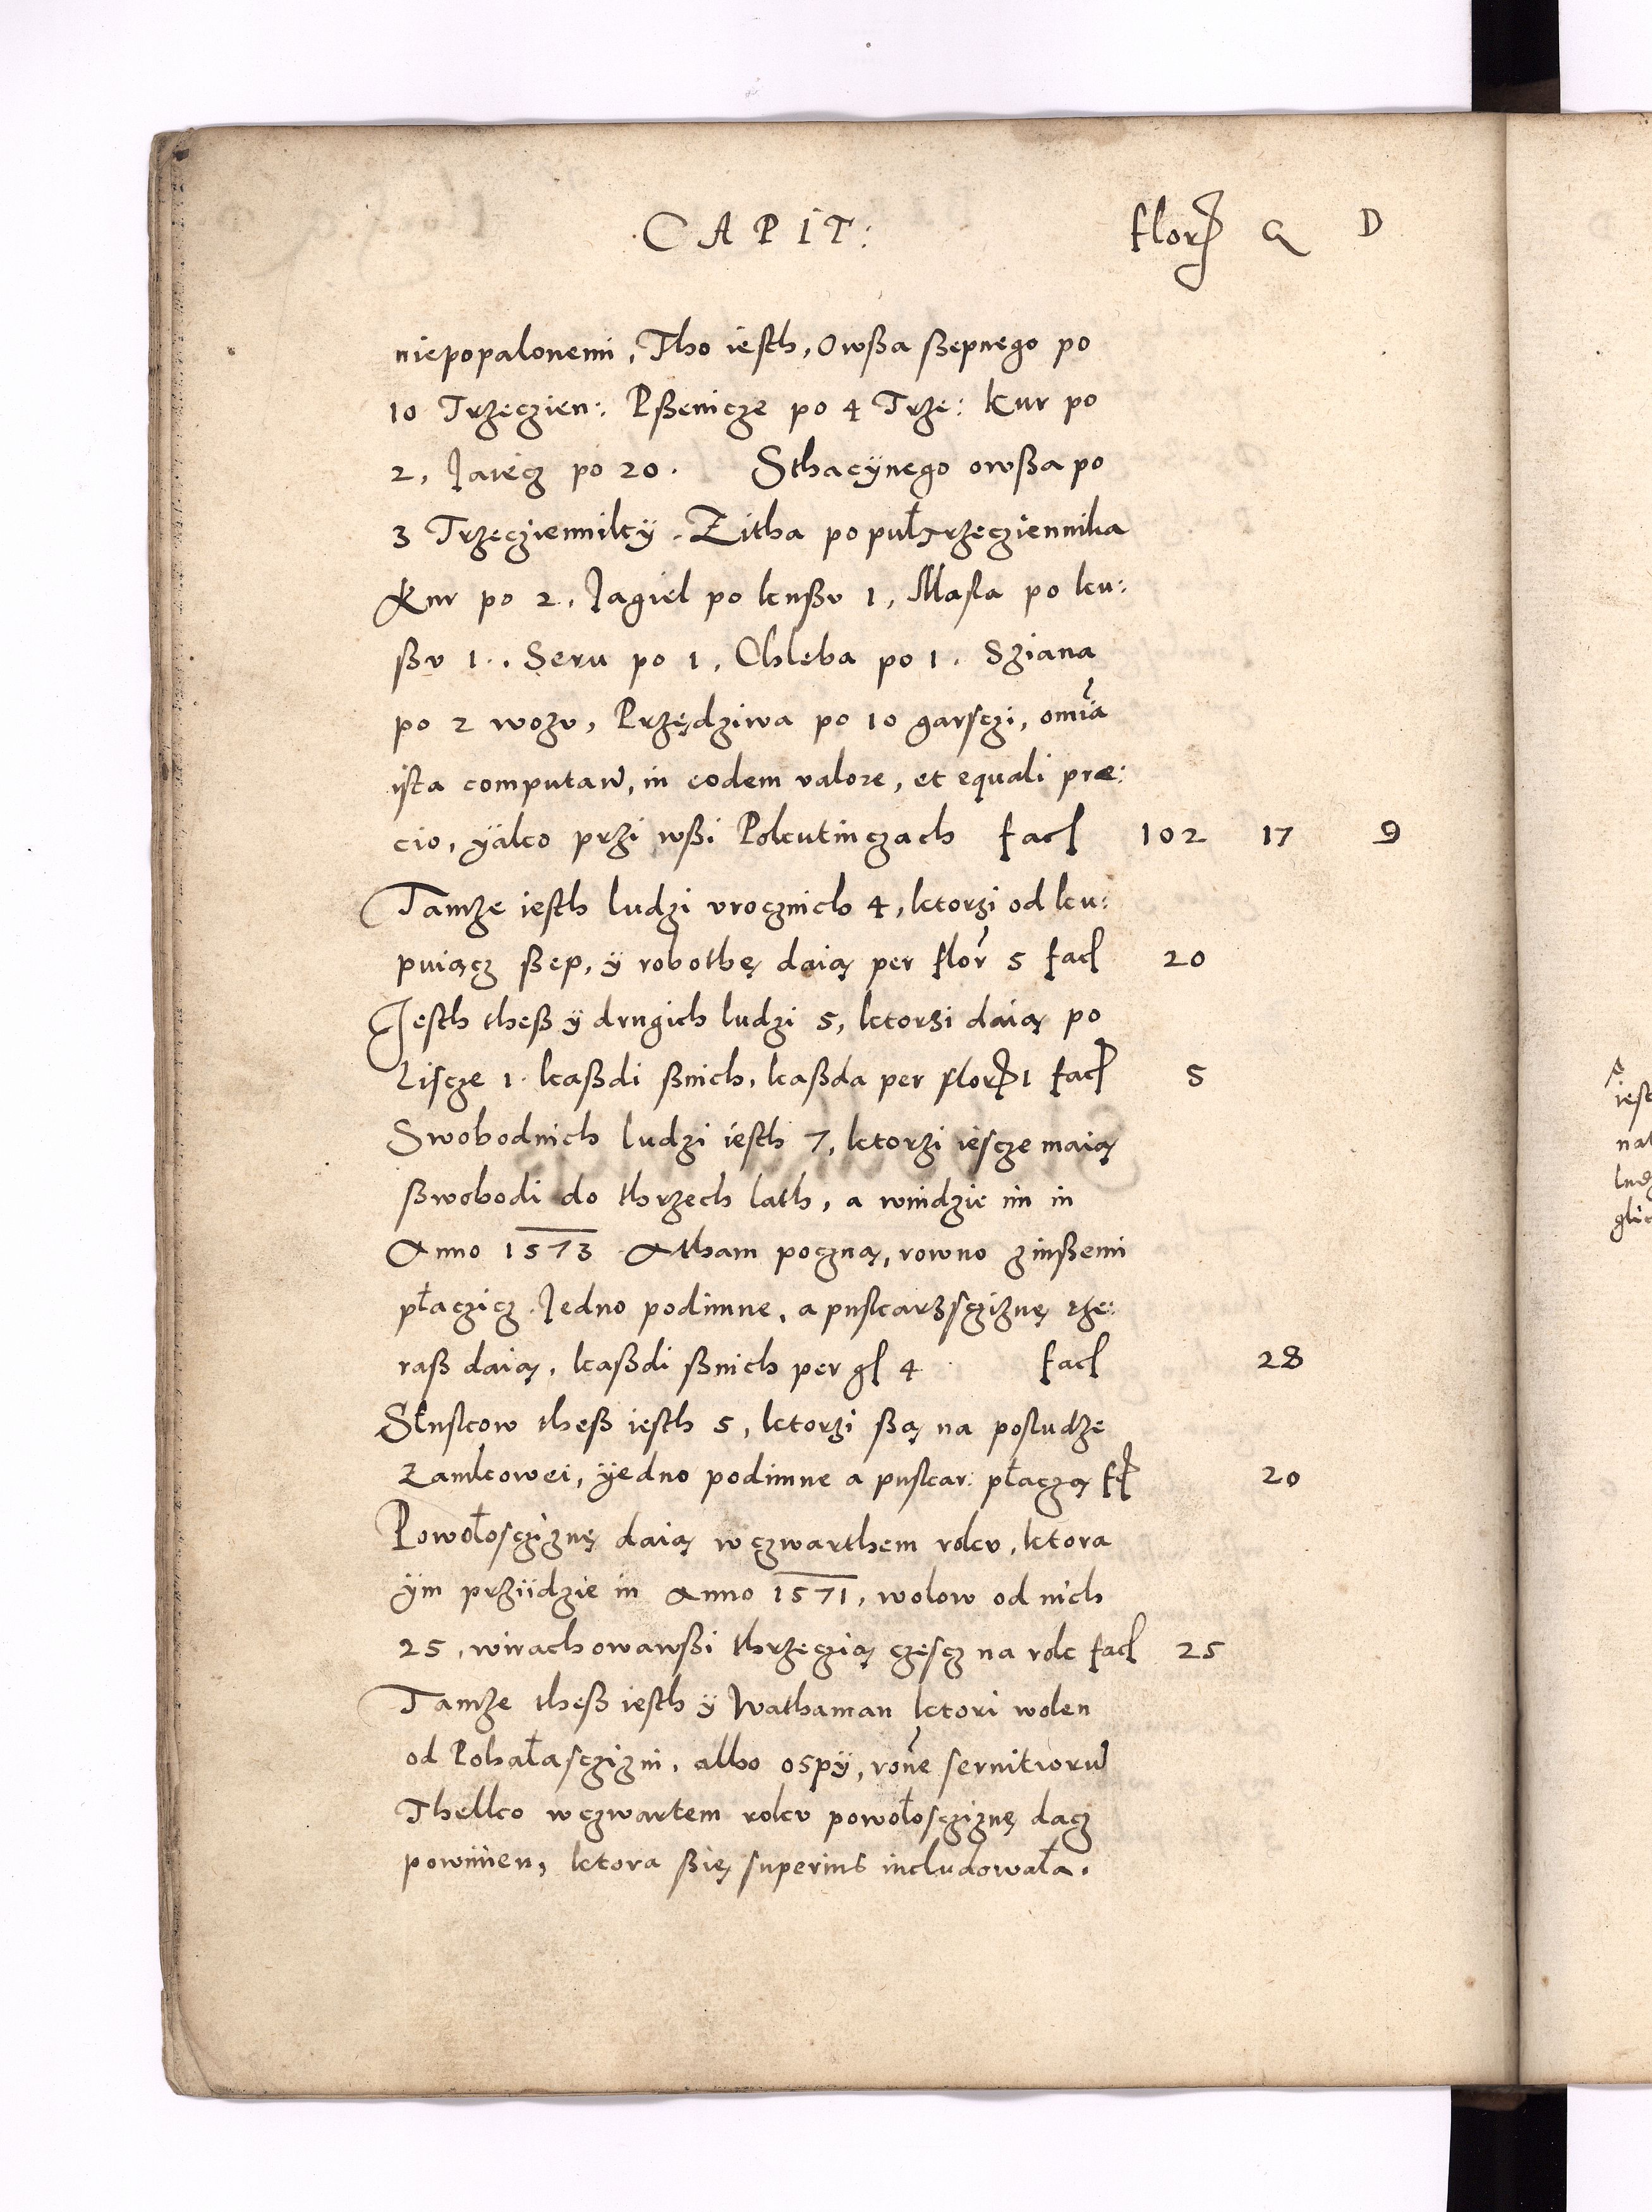 CAPIT: flor G D
niepopalonemi, Tho iesth, Owßa ßepnego po
10 Trzeczien: Pßenicze po 4 Trze: Kur po
2, Jaiecz po 20. Sthacÿnego owßa po
3 Trzecziennikÿ. Zitha po pułtrzecziennika
Kur po 2, Jagieł po kußv 1, Masla po ku:
ßv 1., Seru po 1, Chleba po 1. Sziana
po 2 wozv, Przędziwa po 10 garsczi, omia
ista computaw, in eodem valore, et equali præ:
cio, ÿako przi wßi Polcutinczach fac 102 17 9
Tamże iesth ludzi vrocznich 4, ktorzi od ku:
puiącz ßep, ÿ robothę daią per flor 5 fac 20
Jesth theß ÿ drugich ludzi 5, ktorzi daią po
Liscze 1. kaßdi ßnich, kaßda per flor 1 fac 5
Swobodnich ludzi iesth 7, ktorzi iescze maią
ßwobodi do thrzech lath, a winidzie im in
Anno 1573 A tham poczną, rowno zinßemi
płaczicz. Jedno podimne, a puskarzscziznę the:
raß daią, kaßdi ßnich per gl 4 fac 28
Słuskow theß iesth 5, ktorzi ßą na posludze
Zamkowei, ÿedno podimne a puskar: płaczą fc 20
Powołoscziznę daią w czwarthem rokv, ktora
ÿm prziidzie in Anno 1571, wolow od nich
25, wirachowawßi thrzeczią częscz na rok fac 25
Tamże theß iesth ÿ Wathaman ktori wolen
od Pohałasczizni, albo ospÿ, rone seruitiorū
Thelko w czwartem rokv powołoscziznę dacz
powinien, ktora ßię superius includowała.